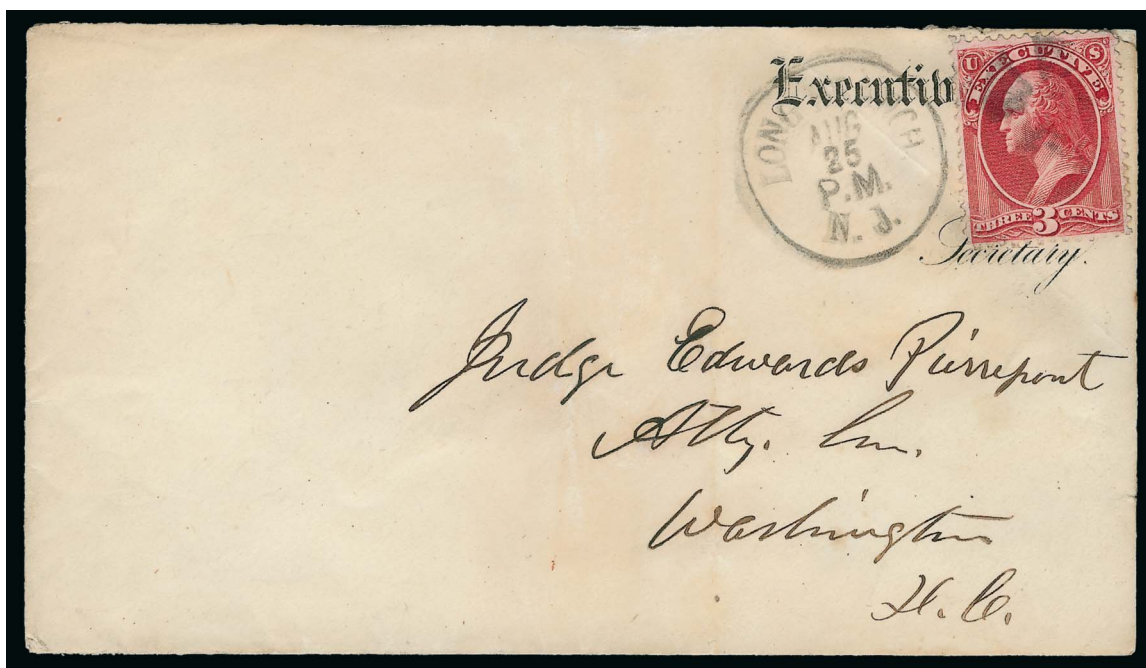 Executiv
LONG BRANCH
AUG
25
P.M.
N. J.
U S
EXECUTIVE
THREE 3 CENTS
Secretary.
Judge Edwards Pierrepont
Atty. Gen.
Washington
D. C.